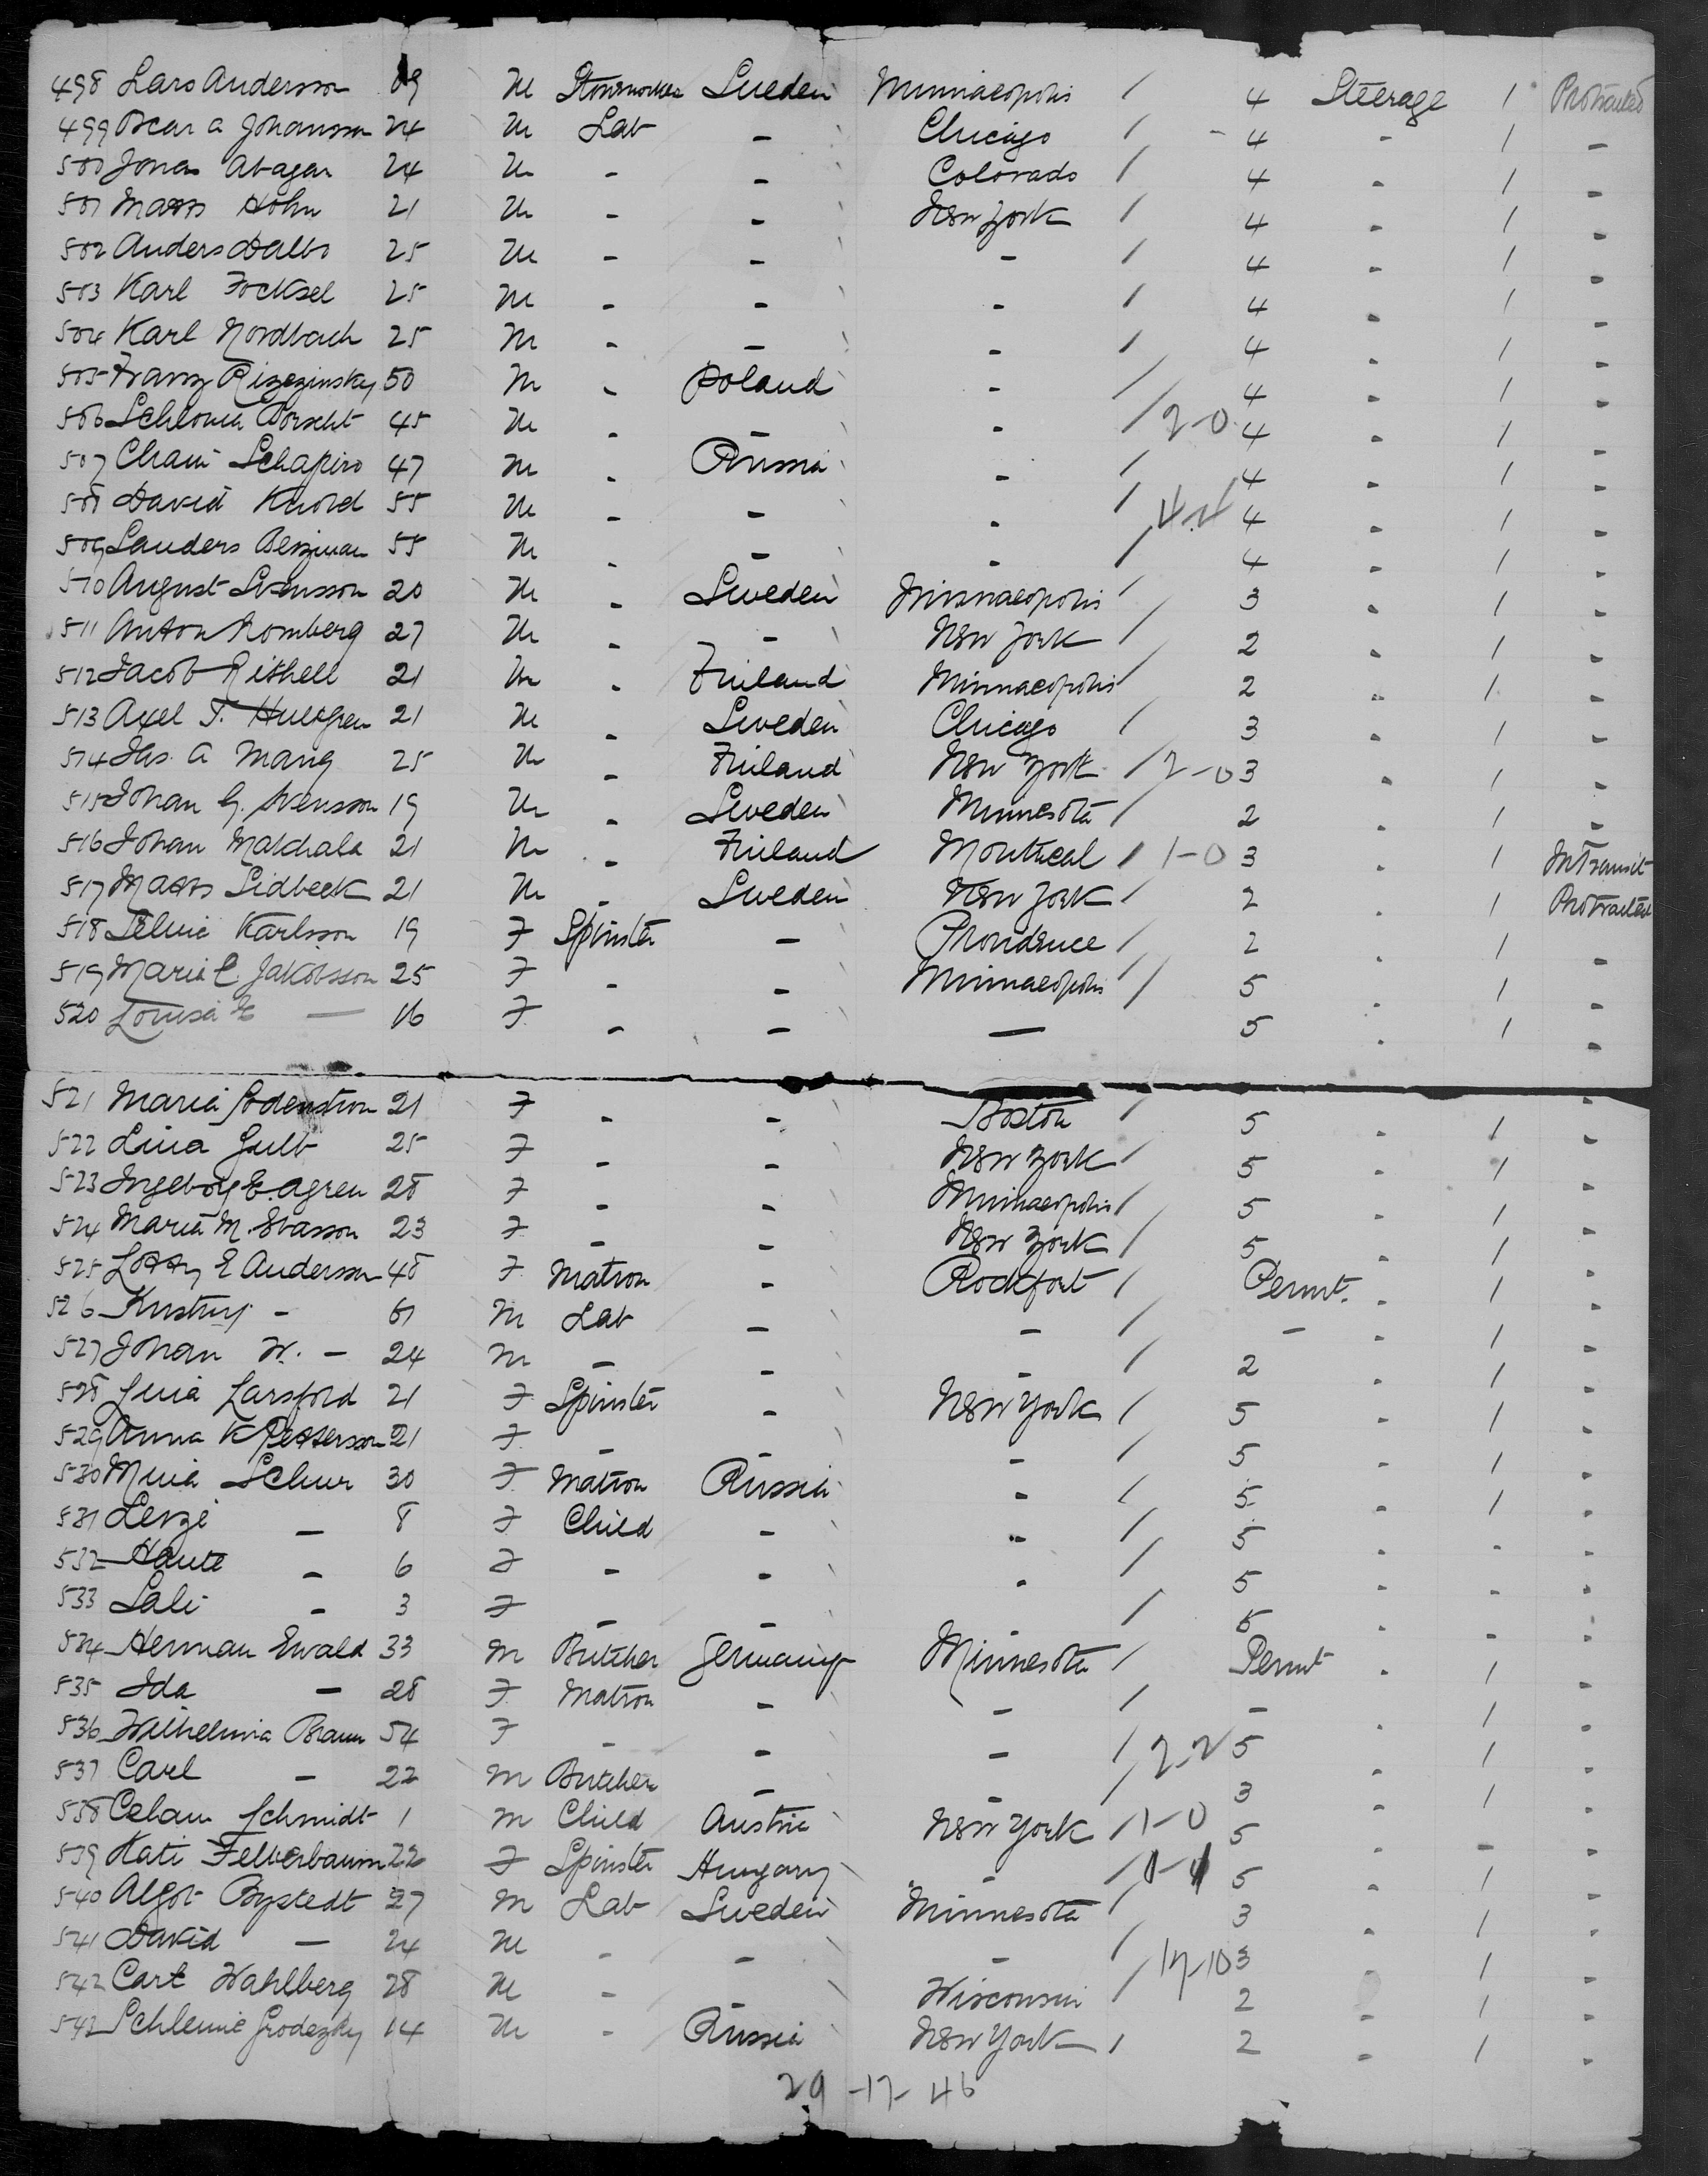 498 Lars Andersson 69 M Stoneworker Sweden Minneapolis / 4 Steerage 1 Protracted
499 Oscar A Johansson 24 M Lab - Chicago / - 4 - 1 -
500 Jonas Abagar 24 M - - Colorado / 4 - 1 -
501 Mats Höhn 21 M - - New York / 4 - 1 -
502 Anders Dalbo 25 M - - - / 4 - 1 -
503 Karl Focksel 25 M - - - / 4 - 1 -
504 Karl Nordbach 25 M - - - / 4 - 1 -
505 Franz Rizezinsky 50 M - Poland - / 4 - 1 -
506 Schloma Borscht 45 M - - - / 2-0 4 - 1 -
507 Chaim Schapiro 47 M - Russia - / 4 - 1 -
508 David Knold 55 M - - - / 4 - 1 -
509 Sanders Berzman 55 M - - - / 4 - 1 -
510 August Svensson 20 M - Sweden Minneapolis / 3 - 1 -
511 Anton Romberg 27 M - - New York / 2 - 1 -
512 Jacob Rithell 21 M - Finland Minneapolis / 2 - 1 -
513 Axel T. Hultgren 21 M - Sweden Chicago / 3 - 1 -
514 Jhs. A Mang 25 M - Finland New York / 2-0 3 - 1 -
515 Johan G. Svensson 19 M - Sweden Minnesota / 2 - 1 -
516 Johan Makhala 21 M - Finland Montreal / 1-0 3 - 1 InTransit
517 Mats Sidbeck 21 M - Sweden New York / 2 - 1 Protracted
518 Selvie Karlsson 19 F Spinster - Providence / 2 - 1 -
519 Maria C. Jakobsson 25 F - - Minneapolis / 5 - 1 -
520 Lovisa E — 16 F - - — 5 - 1 -
521 Maria Södenstrom 21 F - - Boston / 5 - 1 -
522 Lina Gulb 25 F - - New York / 5 - 1 -
523 Ingeborg E. Agren 28 F - - Minneapolis / 5 - 1 -
524 Maria M. Svasson 23 F - - New York / 5 - 1 -
525 Lotty E Andersson 48 F Matron - Rockfort / Permt. - 1 -
526 - 61 M Lab - - / - - 1 -
527 Johan W. - 24 M - - - / 2 - 1 -
528 Lina Larsford 21 F Spinster - New York / 5 - 1 -
529 Anna K Pettersson 21 F - - - / 5 - 1 -
530 Mina Schur 30 F Matron Russia - / 5 - 1 -
531 Lerze - 8 F Child - - / 5 - - -
532 Haute - 6 F - - - / 5 - - -
533 Sali - 3 F - - - / 5 - - -
534 Herman Ewald 33 M Butcher Germany Minnesota / Permt - 1 -
535 Ida - 28 F Matron - - / - - 1 -
536 Wilhelmina Braun 54 F - - - / 2-2 5 - 1 -
537 Carl - 22 M Butcher - - / 3 - 1 -
538 Schmidt 1 M Child Austria New York / 1-0 5 - - -
539 Kati Felberbaum 22 F Spinster Hungary - / 0-1 5 - 1 -
540 Algot Bystedt 27 M Lab Sweden Minnesota / 3 - 1 -
541 David — 24 M - - - / 17-10 3 - 1 -
542 Carl Wahlberg 28 M - - Wisconsin / 2 - 1 -
542 Schleime Grodezky 14 M - Russia New York / 2 - 1 -
29-17-46